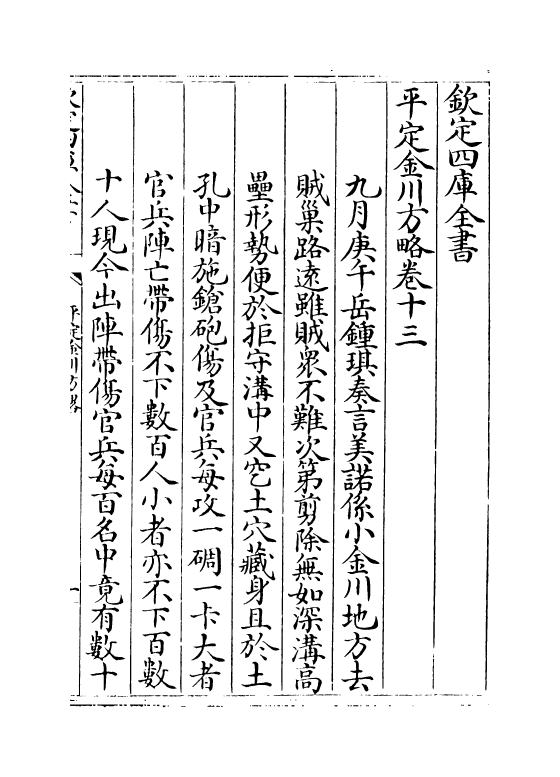 欽定四庫全書
平定金川方略卷十三
九月庚午岳鍾琪奏言美諾係小金川地方去
賊巢路遠雖賊衆不難次第剪除無如深溝高
壘形勢便於拒守溝中又穵土穴藏身且於土
孔中暗施鎗砲傷及官兵每攻一碉一卡大者
官兵陣亡帶傷不下數百人小者亦不下百數
十人現今出陣帶傷官兵每百名中竟有數十
平定金川方畧
一